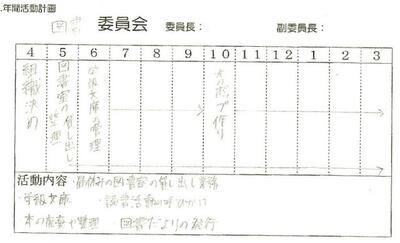 年間活動計画
図書 委員会 委員長： 副委員長：
4 5 6 7 8 9 10 11 12 1 2 3
組織決め
図書室の貸し出し、整理
学級文庫の管理
作り
活動内容・昼休みの図書室の貸し出し業務
・学級文庫 ・読書活動の
本の 整理 ・図書だよりの発行